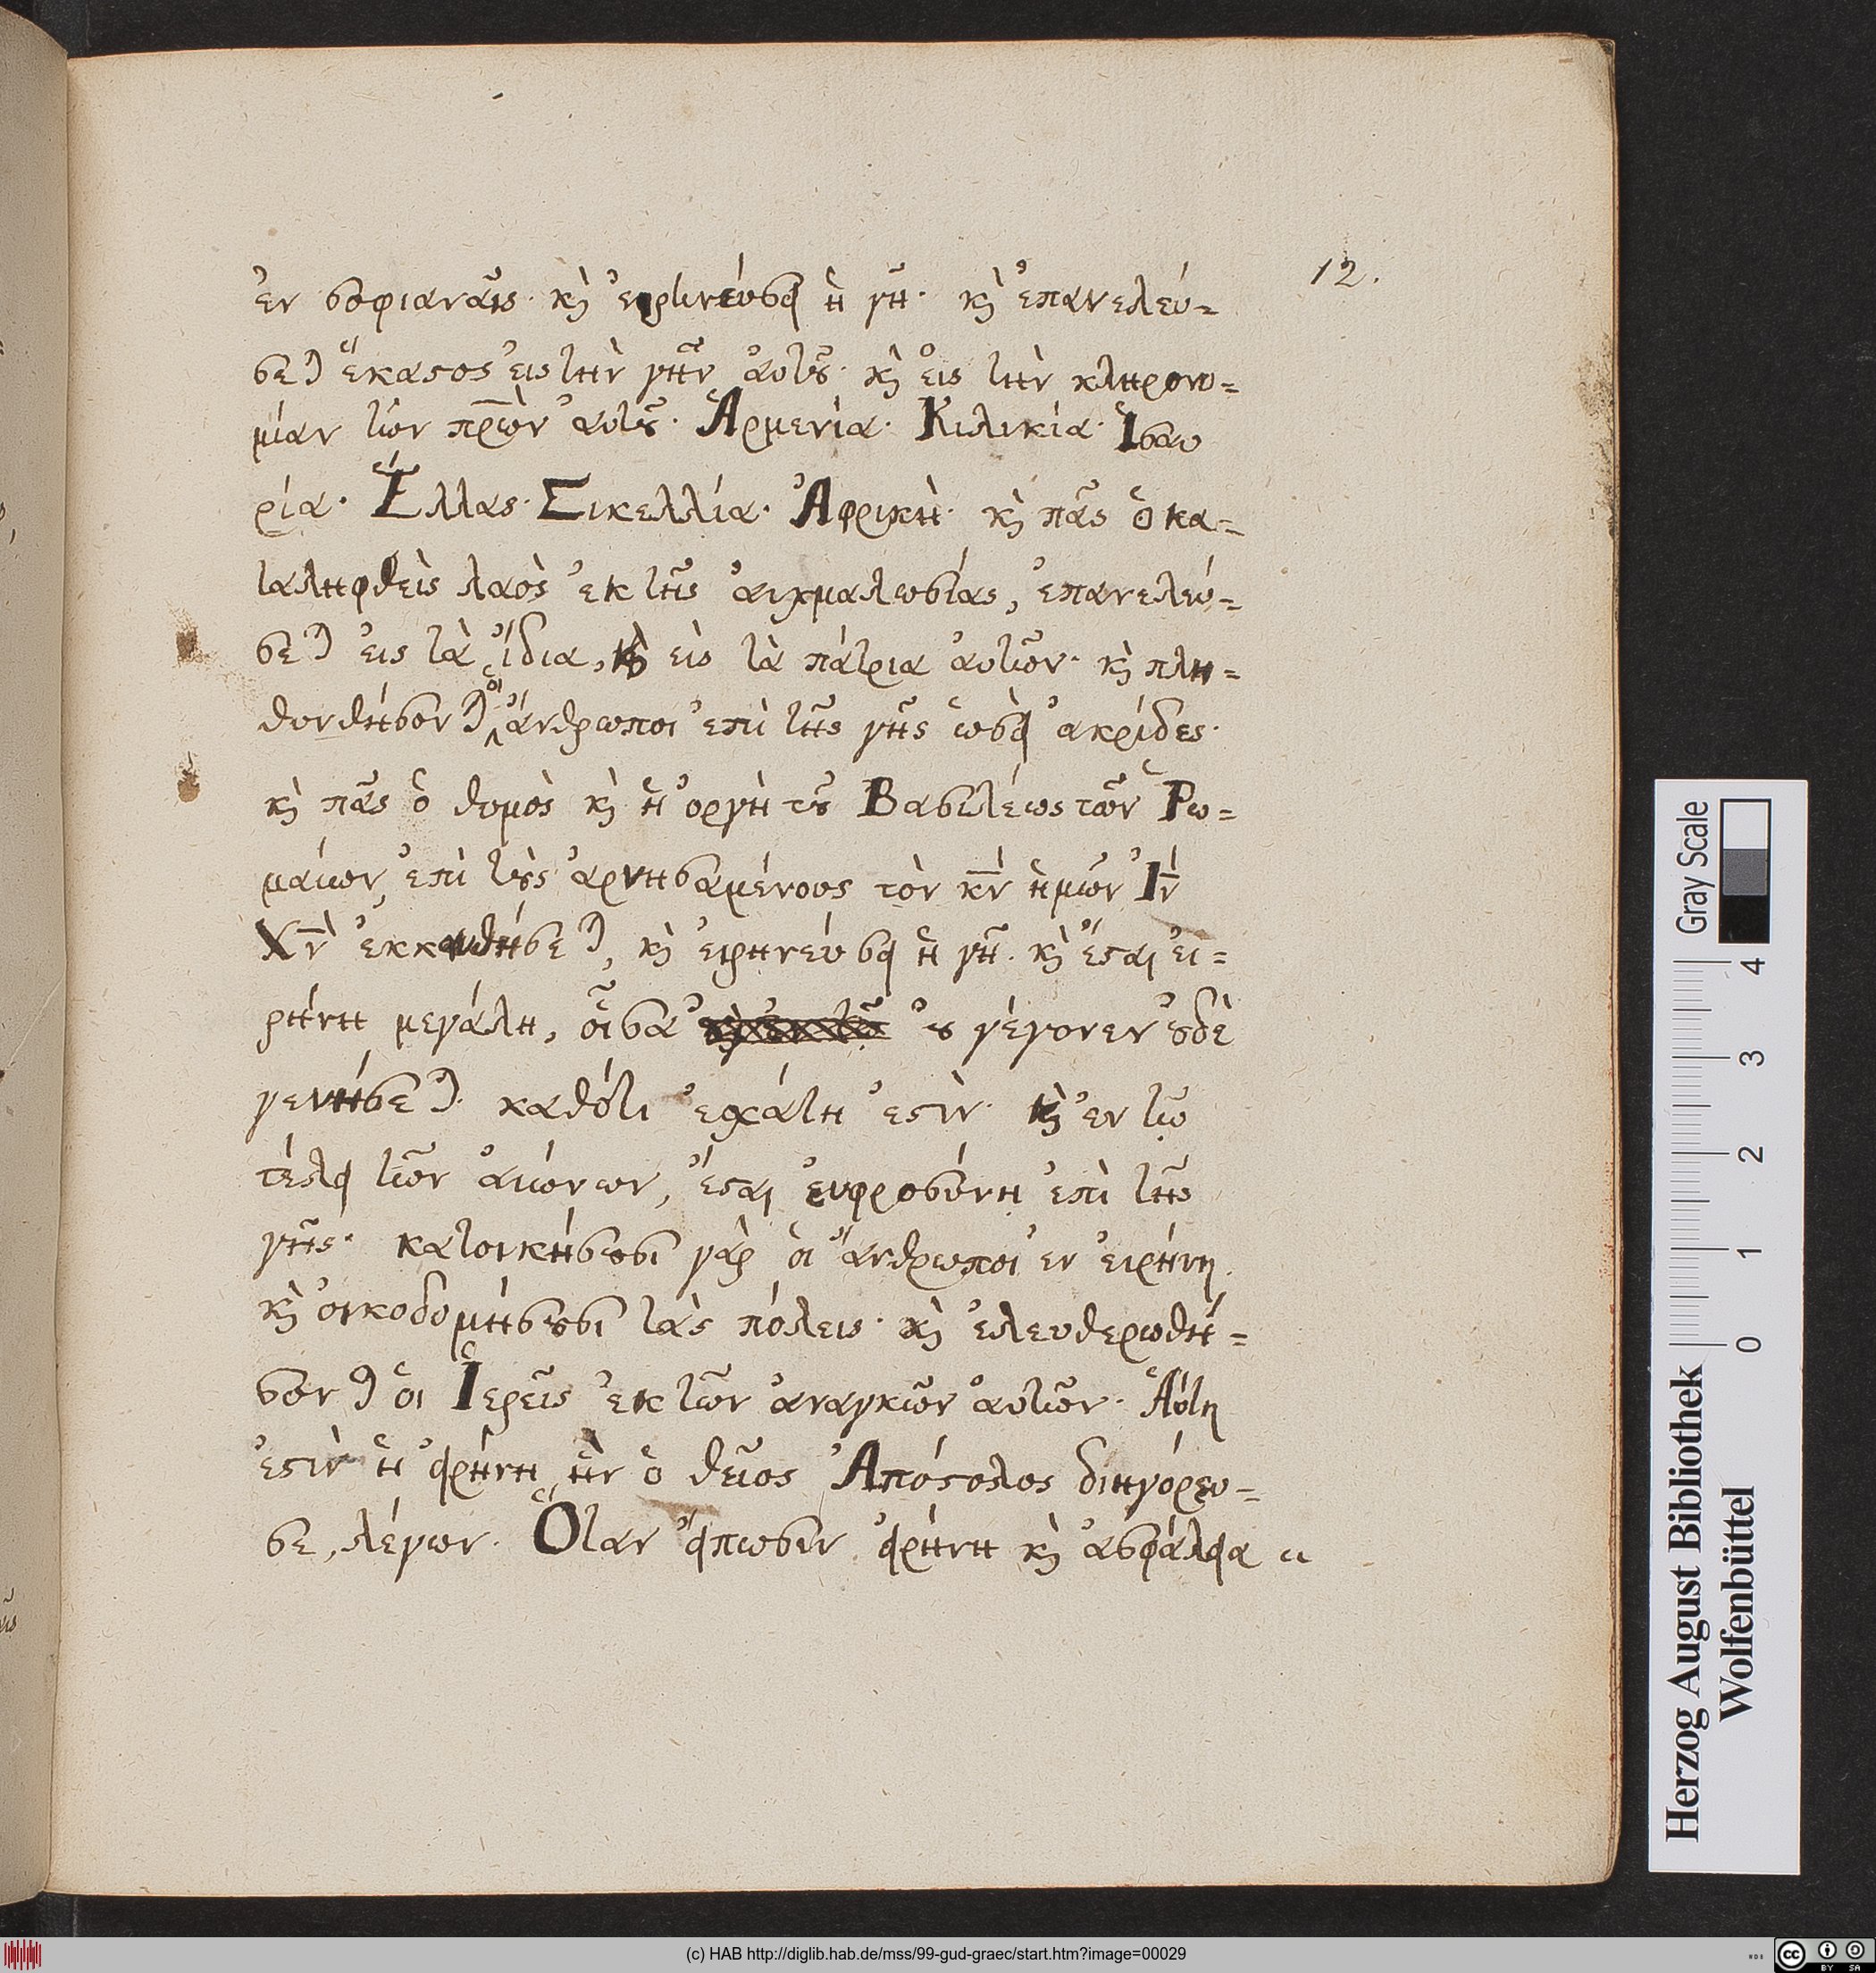 12.
ἐν σοφιαναῖς· κὴ εἰρηνεύσει ἡ γῆ· κὴ ἐπανελεύ=
σεται ἕκαστος εἰς τὴν γῆν αὐτοῦ· κὴ εἰς τὴν κληρονο=
μίαν τῶν πρων αὐτοῦ· Ἀρμενία· Κιλικία· Ἰσαυ
ρία· Ἑλλας· Σικελλία· Ἀφρικὴ· κὴ πᾶς ὁ κα=
ταληφθεὶς λαὸς ἐκ τῆς αἰχμαλωσίας, ἐπανελεύ=
σεται εἰς τὰ ἴδια, κὴ εἰς τὰ πάτρια αὐτῶν· κὴ πλη=
θυνθήσονται οἱ ἄνθρωποι ἐπὶ τῆς γῆς ὡσεὶ ἀκρίδες·
κὴ πᾶς ὁ θυμὸς κὴ ἡ ὀργὴ τοῦ Βασιλέως τῶν Ῥω=
μαίων, ἐπὶ τοὺς ἀρνησαμένους τὸν κν ἡμῶν Ἰν
Χν ἐκκαυθήσεται, κὴ εἰρηνεύσει ἡ γῆ. κὴ ἔσται εἰ=
ρήνη μεγάλη, οἷσα οὐ γέγονεν οὐδὲ
γενήσεται· καθότι ἐσχάτη ἐστὶν· κὴ ἐν τῷ
τέλει τῶν αἰώνων, ἔσται εὐφροσύνη ἐπὶ τῆς
γῆς· κατοικήσουσι γὰρ οἱ ἄνθρωποι ἐν εἰρήνῃ.
κὴ οἰκοδομήσουσι τὰς πόλεις· κὴ ἐλευθερωθή=
σονται οἱ Ἱερεῖς ἐκ τῶν ἀναγκῶν αὐτῶν· Αὕτη
ἐστὶν ἡ εἰρήνη, ἣν ὁ θεῖος Ἀπόστολος διηγόρευ=
σε, λέγων· Ὅταν εἴπωσιν εἰρήνη κὴ ἀσφάλεια
Gray Scale
4
3
2
1
0
Herzog August Bibliothek
Wolfenbüttel
(c) HAB http://diglib.hab.de/mss/99-gud-graec/start.htm?image=00029
cc
BY SA